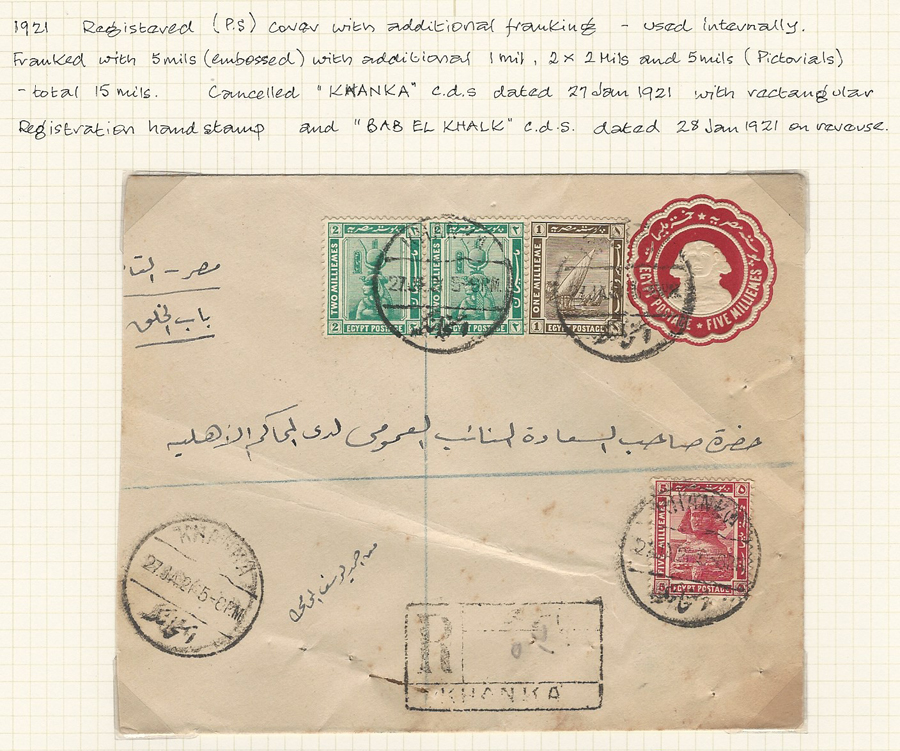 1921 Registered (P.S) cover with additional franking - used internally.
Franked with 5mils (embossed) with additional 1 mil, 2 x 2 Mils and 5mils (Pictorials)
- total 15 mils. Cancelled "KHANKA" c.d.s dated 27 Jan 1921 with rectangular
Registration handstamp and "BAB EL KHALK" c.d.s. dated 28 Jan 1921 on reverse.
2 ٢
TWO MILLIEMES
EGYPT POSTAGE
2 ٢
2 ٢
TWO MILLIEMES
EGYPT POSTAGE
2 ٢
1 ١
ONE MILLIEME
EGYPT POSTAGE
1 ١
EGYPT POSTAGE ★ FIVE MILLIEMES ★
مصر -
باب الخلق
حضرة صاحب السعادة النائب العمومى لدى المحاكم الأهلية
5 ٥
FIVE MILLIEMES
EGYPT POSTAGE
KHANKA
KHANKA
27.JA.21.5-6PM
R
KHANKA